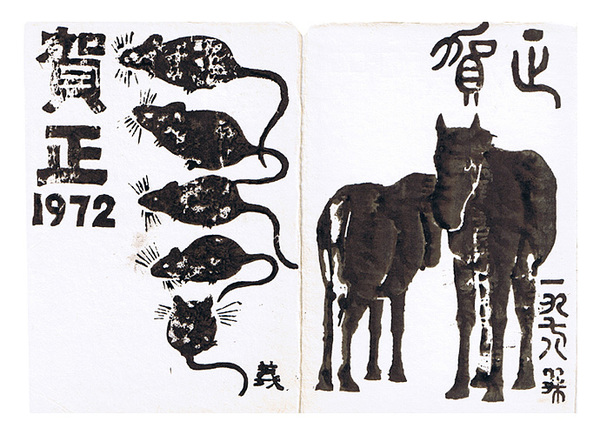 賀正
1972
義
賀正
一九七八